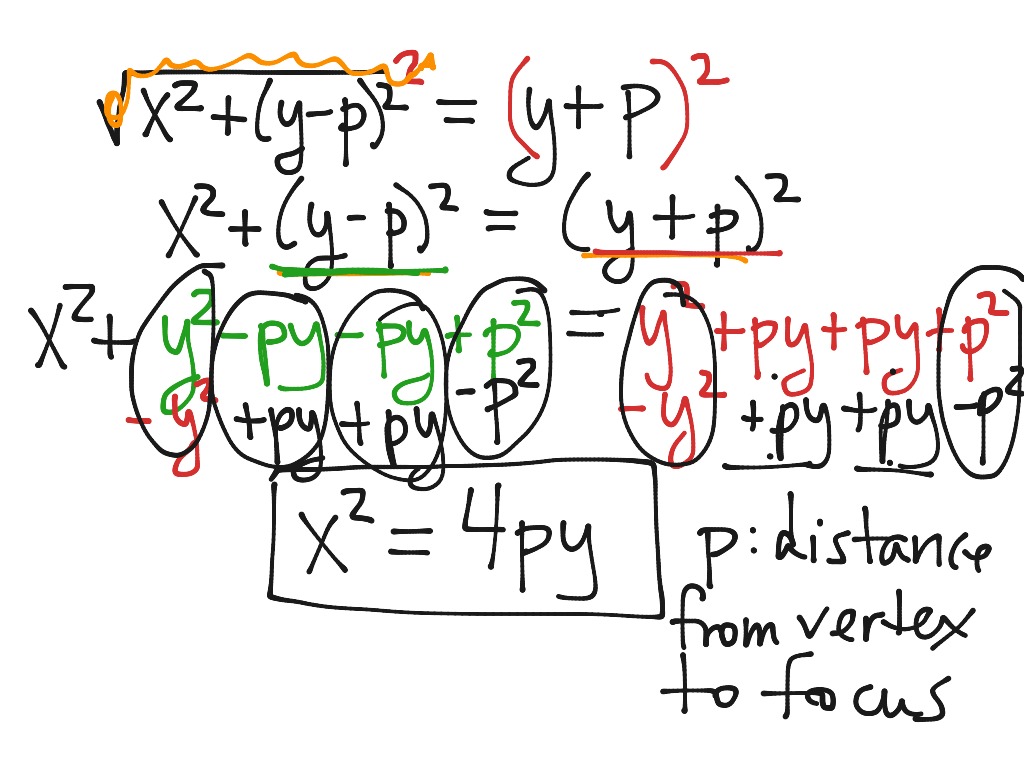 √x² + (y - p)²² = (y + p)²
x² + (y - p)² = (y + p)²
x² + y² - py - py + p² = y² + py + py + p²
- y² + py + py - p² - y² + py + py - p²
x² = 4py
p: distance
from vertex
to focus